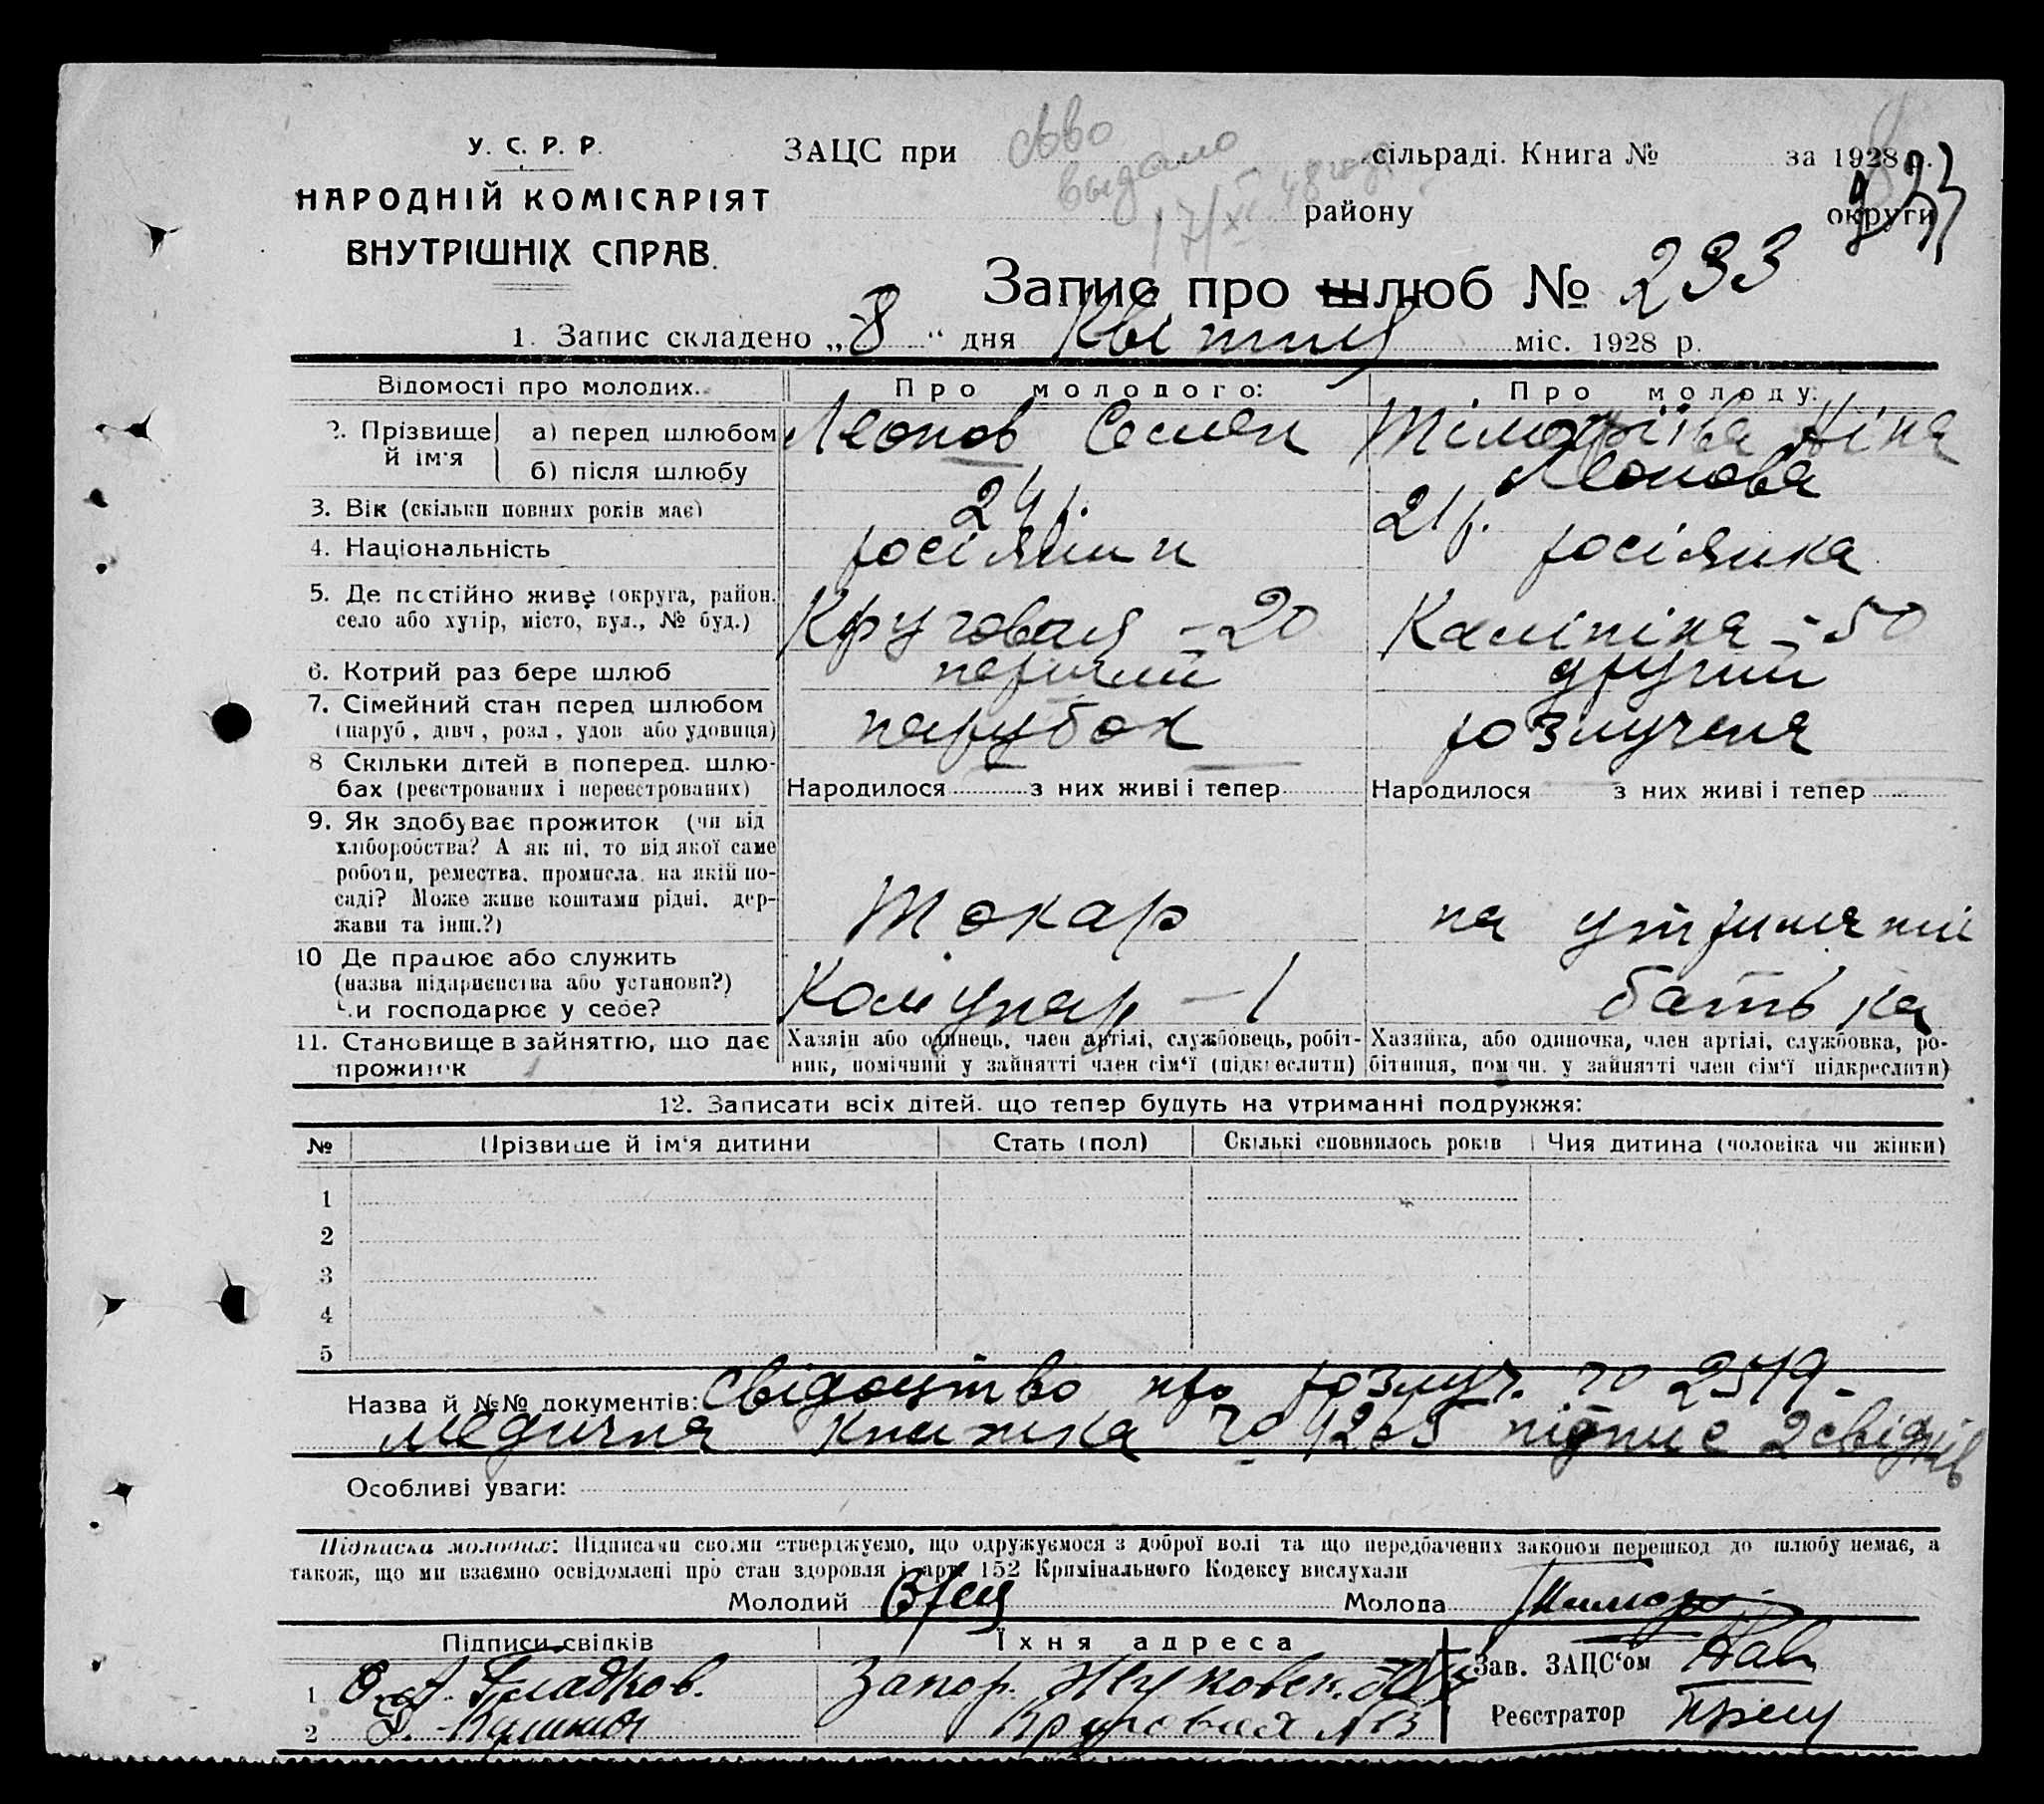 У. С. Р. Р.
НАРОДНІЙ КОМІСАРІЯТ
ВНУТРІШНІХ СПРАВ.
ЗАЦС при сільраді. Книга № за 1928 р.
району округи
с-во
выдано
17/XI 48 года
Запис про шлюб № 233
1. Запис складено „8“ дня Квітня міс. 1928 р.
Відомості про молодих. Про молодого: Про молоду:
2. Прізвище й ім'я а) перед шлюбом Леонов Семен Нiна
б) після шлюбу Леонова
3. Вік (скільки повних років має) 24 р. 21 р.
4. Національність росіянин росіянка
5. Де постійно живе (округа, район, село або хутір, місто, вул., № буд.) Круговая – 20 Калініна – 50
6. Котрий раз бере шлюб перший другий
7. Сімейний стан перед шлюбом (паруб., дівч., розл., удов. або удовиця) парубок розлучена
8 Скільки дітей в поперед. шлюбах (реєстрованих і нереєстрованих) Народилося з них живі і тепер Народилося з них живі і тепер
9. Як здобуває прожиток (чи від
хліборобства? А як ні, то від якої саме
роботи, ремества, промисла, на якій по-
саді? Може живе коштами рідні, дер-
жави та інш.?) Токар на утриманні
10 Де працює або служить
(назва підприємства або установи?)
Чи господарює у себе? Комунар – 1 батька
11. Становище в зайняттю, що дає прожиток
Хазяін або одинець, член артілі, службовець, робіт-
ник, помічний у зайнятті член сім'ї (підкреслити)
Хазяйка, або одиночка, член артілі, службовка, ро-
бітниця, помічн. у зайнятті член сім'ї підкреслити)
12. Записати всіх дітей, що тепер будуть на утриманні подружжя:
№ Прізвище й ім'я дитини Стать (пол) Скількі сповнилось років Чия дитина (чоловіка чи жінки)
1
2
3
4
5
Назва й №№ документів: Свідоцтво про розлуч. по
медична книжка підпис 2 свідків
Особливі уваги:
Підписка молодих: Підписами своїми стверджуємо, що одружуємося з доброї волі та що передбачених законом перешкод до шлюбу немає, а
також, що ми взаємно освідомлені про стан здоровля і арт. 152 Кримінального Кодексу вислухали
Молодий Молода
Підписи свідків Їхня адреса Зав. ЗАЦС'ом
1 Гладков. Запор. Жуковск.
2 Круговая Реєстратор